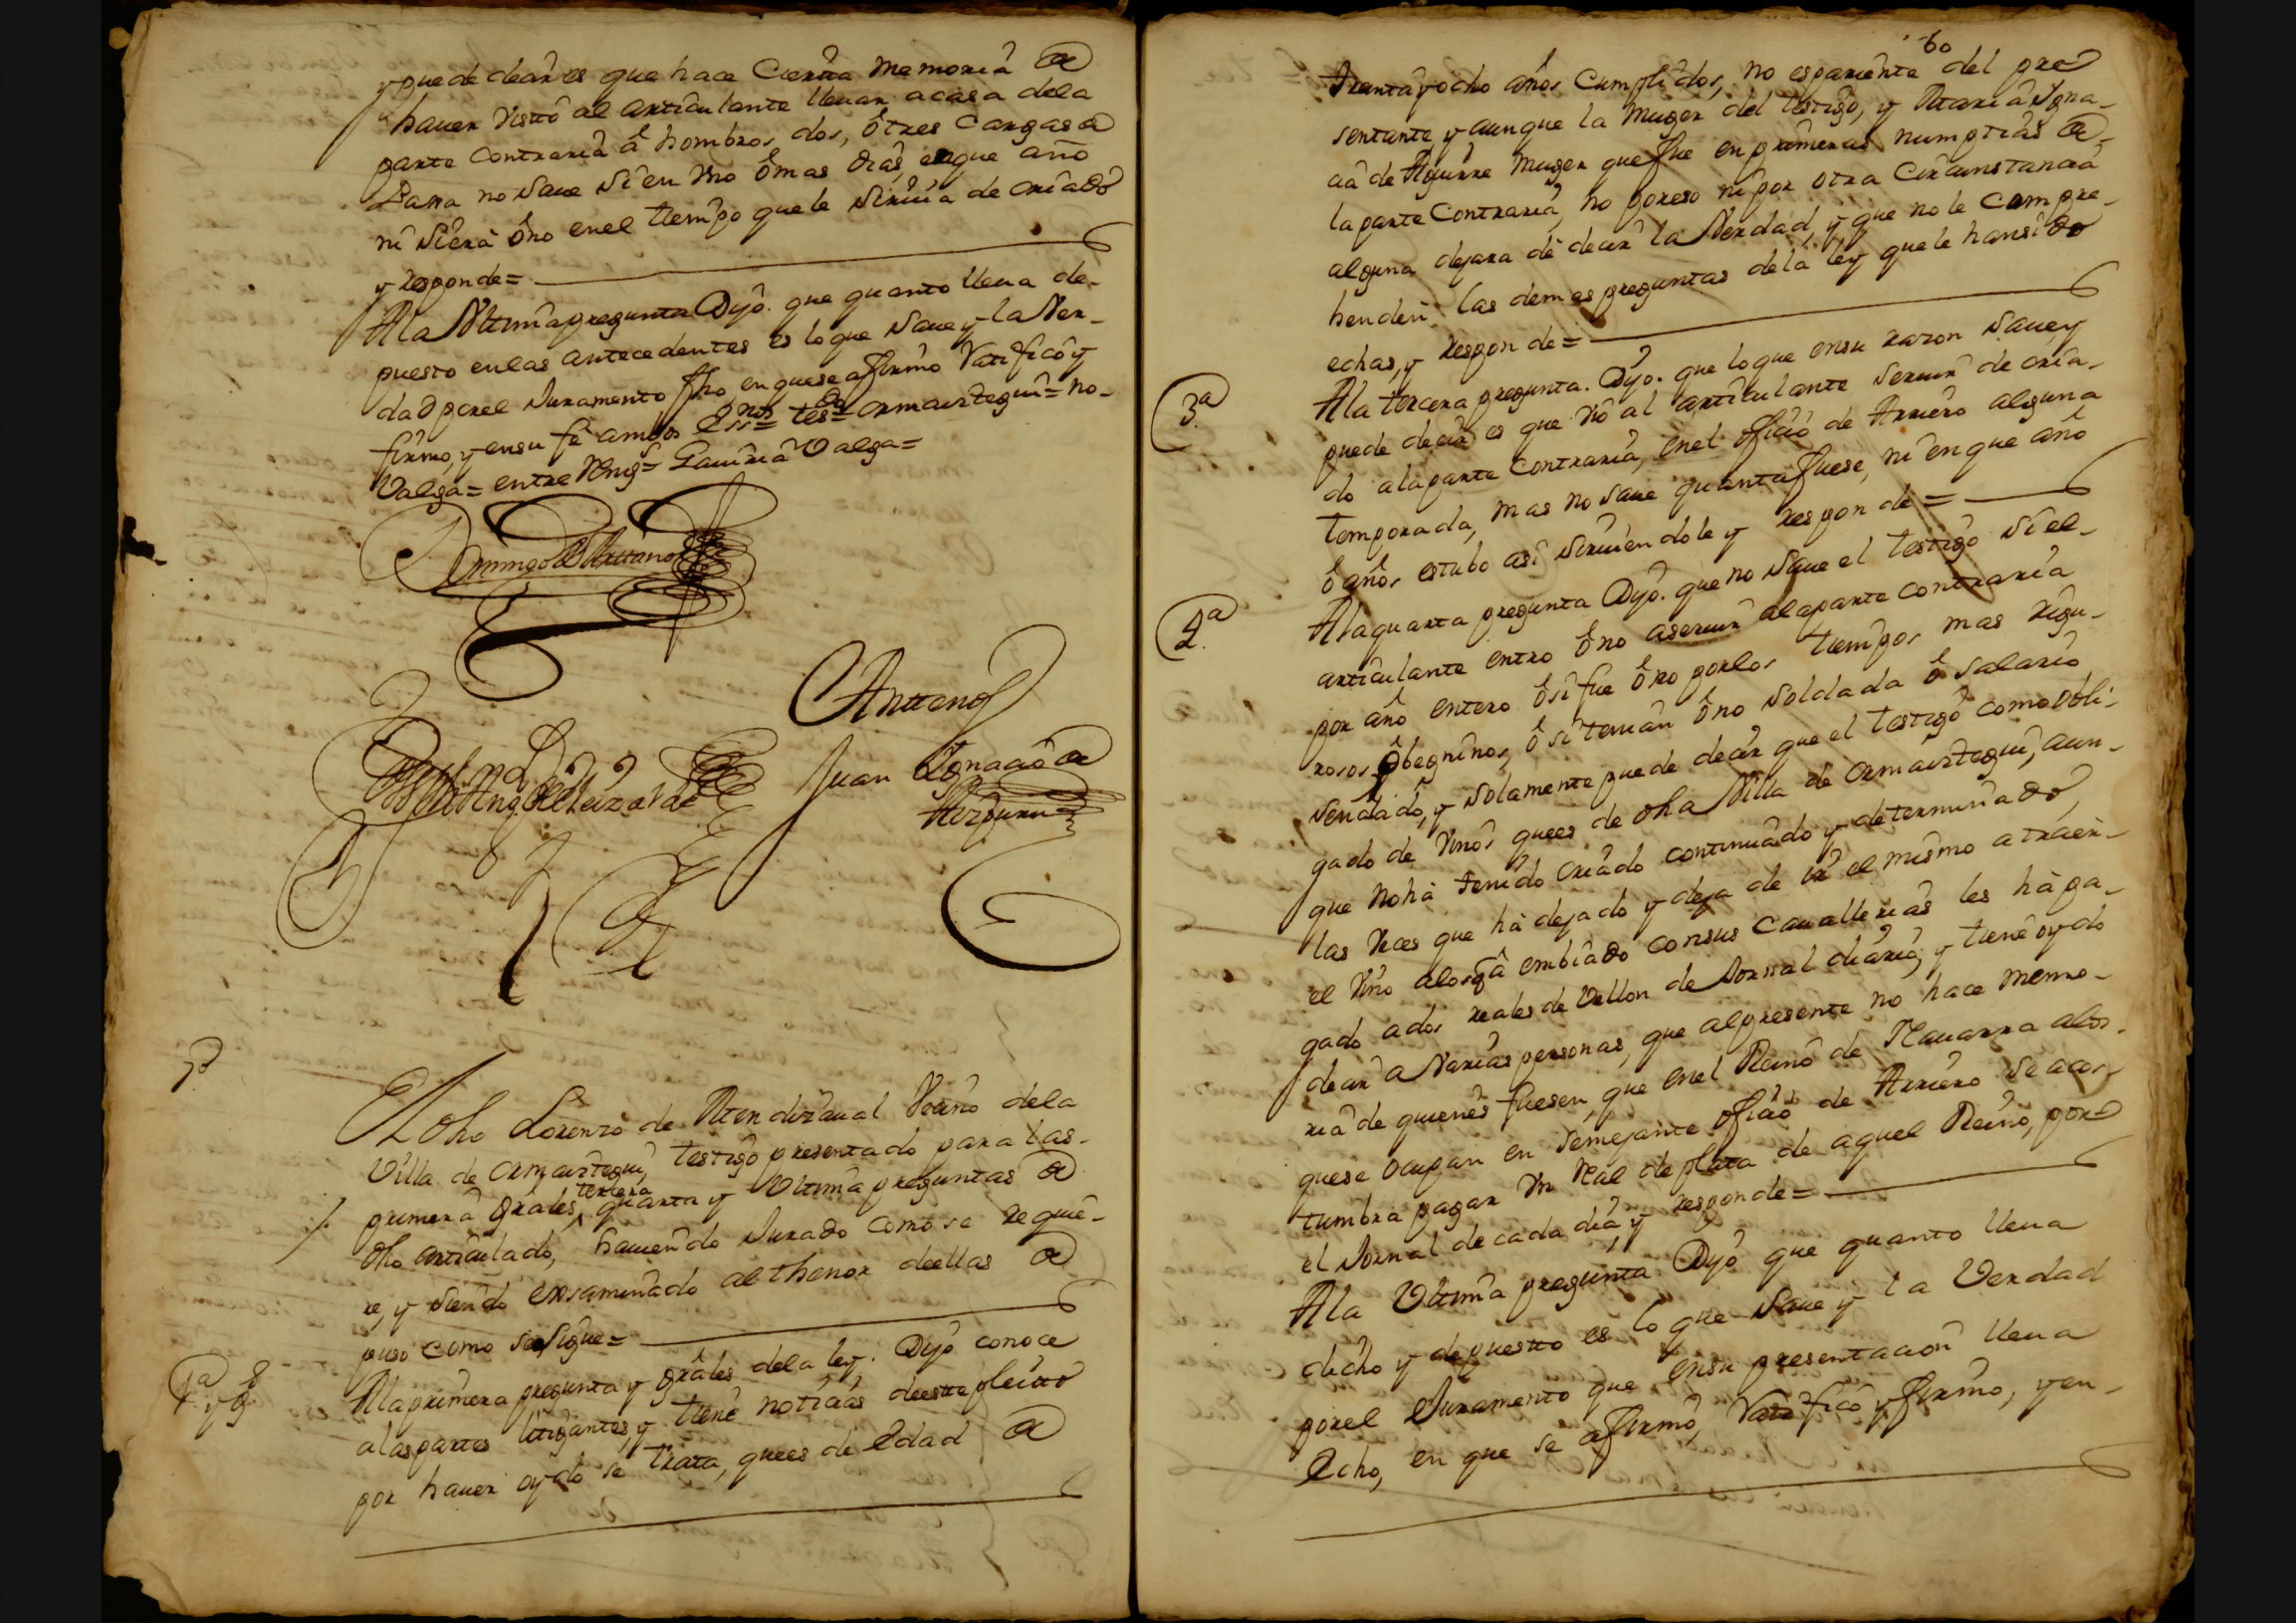 y puede decir es que hace Cierta memoria de
haver Visto al articulante llevar a casa dela
parte Contraria â hombros dos, ô tres Cargas de
Lana no save si en Vno ô mas dias, en que año
ni Siera ô no enel tiempo que le Servia de criado
y responde=
Ala Vltima pregunta Dijo. que quanto lleva de-
puesto enlas antecedentes es loque save y la Ver-
dad porel Juramento fho, en que se afirmò Ratificò y
firmo, y en su fe ambos Essnos tesdo= ormaiztegui= no-
Valga= entre Rengs= Gaviria Valga=
Domingo de Arizano
Antteno
Juan Ygnacio de
Aizpuru
3º
El dho Lorenzo de Mendizaval Vecino dela
Villa de ormaiztegui, testigo presentado para las
primera Grales, tercera quarta y Vltima preguntas de
dho articulado, haviendo Jurado como se requie-
re, y siendo exsaminado al thenor de ellas de
puso como se sigue=
1ª y g.s
Ala primera pregunta y grâles dela ley. Dijo conoce
alas partes litigantes, y tiene noticias de este pleito
por haver oydo se trata, que es de Edad de
60
treinta y ocho años Cumplidos, no es pariente del pre
sentante, y aunque la muger del testigo, y Maria Ygna-
cia de Aguirre muger que fue en primeras numptias de
la parte Contraria, no por eso ni por otra circunstancia
alguna dejara de decir la Verdad, y que no le Compre-
henden las demas preguntas dela ley que le han sido
echas, y responde=
3ª
Ala tercera pregunta. Dijo. que loque en su razon save, y
puede decir es que Vió al articulante Servir de cria-
do ala parte Contraria, enel oficio de Arriero alguna
temporada, mas no save quanta fuese, ni en que año
ô años estubo asi sirviendole y responde=
4ª
Ala quarta pregunta Dijo. que no save el testigo si el
articulante entro ô no aservir ala parte contraria
por año entero ô si fue ô no porlos tiempos mas rigu-
rosos ô beninos, ô si tenian ô no soldada ô salario
sendado, y solamente puede decir que el testigo como obli-
gado de Vinos que es de dha Villa de ormaiztegui, aun-
que no hà tenido Criado continuado y determinado,
las Veces que hà dejado y deja de ir el mismo a traer
el Vino alos q̃ â embiado consus Cavallerias les hà pa-
gado a dos reales de Vellon de Jornal diario, y tiene oydo
decir a Varias personas, que alpresente no hace memo-
ria de quienes fuesen, que enel Reino de Navarra alos
que se ocupan en semejante oficio de Arriero se acos-
tumbra pagar Vn Real de plata de aquel Reino, por
el Jornal de cada dia, y responde=
Ala Vltima pregunta Dijo que quanto lleva
dicho y depuesto es lo que save y la Verdad
porel Juramento que en su presentacion lleva
Echo, en que se afirmó, Ratificó y firmo, y en-